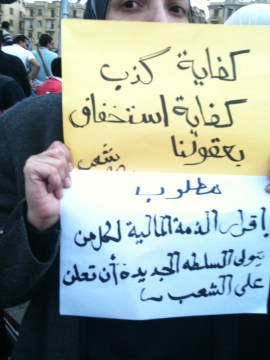 كفاية كذب
كفاية استخفاف
بعقولنا
شعب
مطلوب
إقرار الذمة المالية لكل من
يتولى السلطه الجديدة أن تعلن
على الشعب